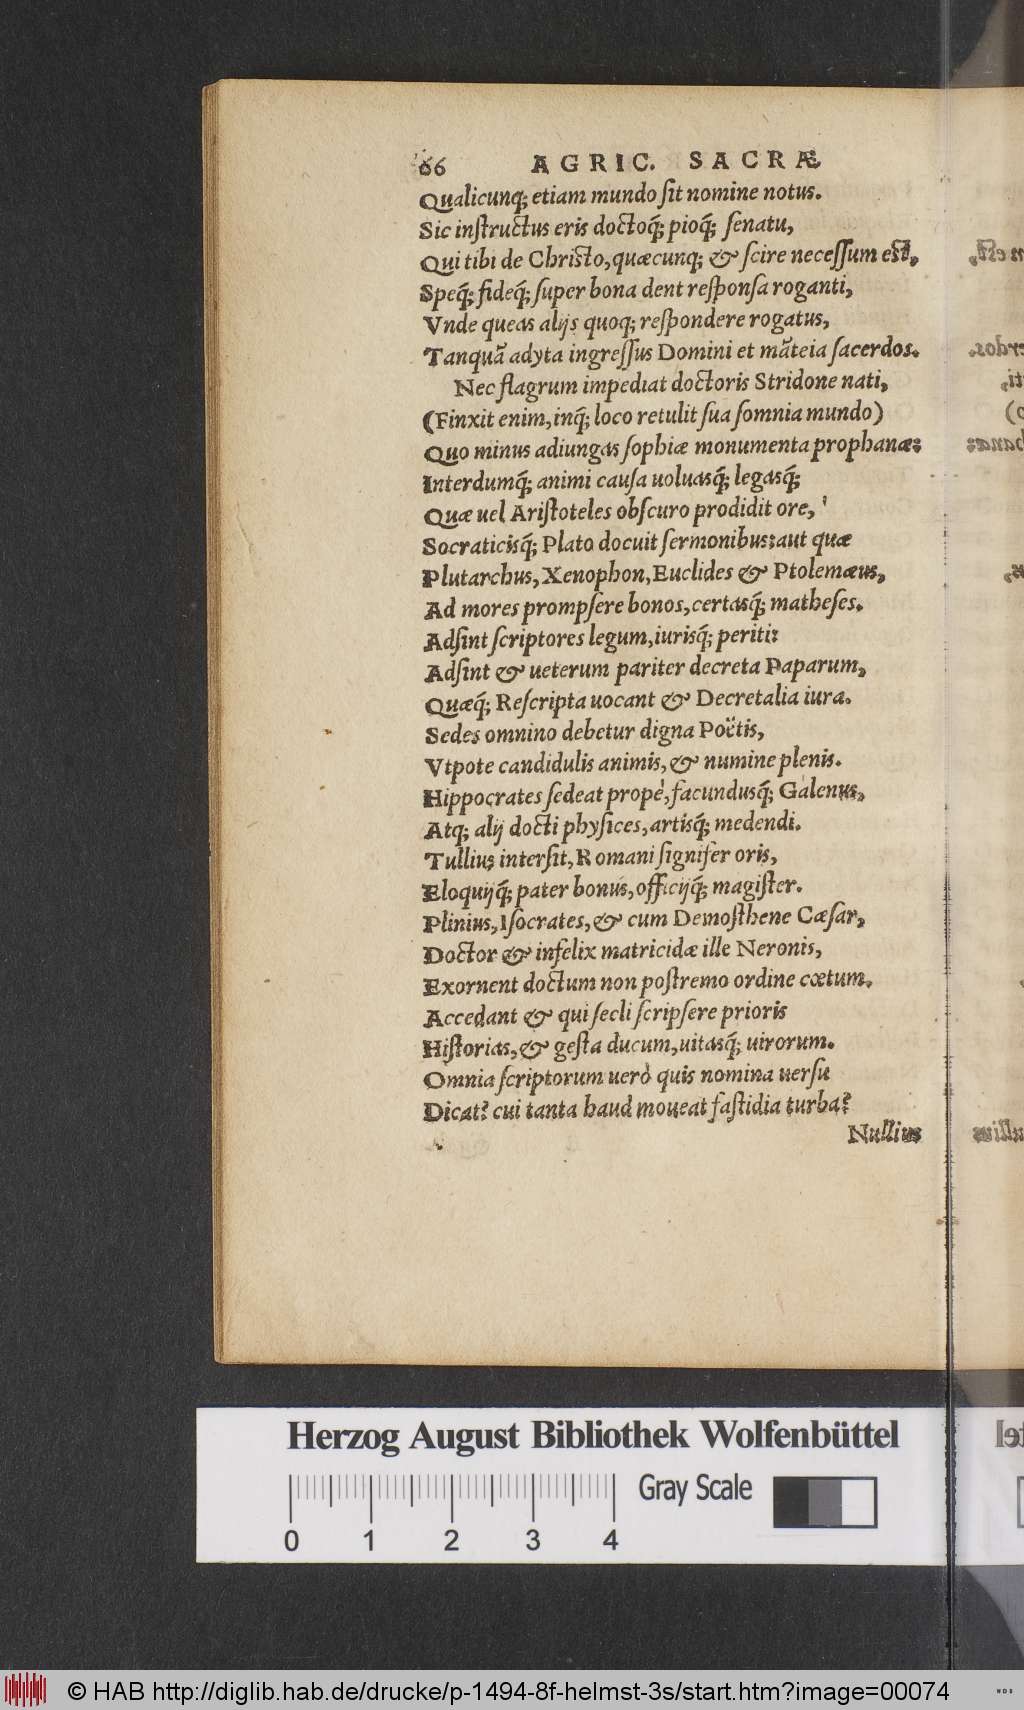 66 AGRIC. SACRÆ
Qualicunq; etiam mundo ſit nomine notus.
Sic inſtructus eris doctoq́; pioq́; ſenatu,
Qui tibi de Chriſto, quæcunq; & ſcire neceſſum eſt,
Speq́; fideq́; ſuper bona dent reſponſa roganti,
Vnde queas alijs quoq; reſpondere rogatus,
Tanquā adyta ingreſſus Domini et māteia ſacerdos.
Nec flagrum impediat doctoris Stridone nati,
(Finxit enim, inq́; loco retulit ſua ſomnia mundo)
Quo minus adiungas ſophiæ monumenta prophanæ:
Interdumq́; animi cauſa uoluasq́; legasq́;
Quæ uel Ariſtoteles obſcuro prodidit ore,
Socraticisq́; Plato docuit ſermonibus: aut quæ
Plutarchus, Xenophon, Euclides & Ptolemæus,
Ad mores prompſere bonos, certasq́; matheſes.
Adſint ſcriptores legum, iurisq́; periti:
Adſint & ueterum pariter decreta Paparum,
Quæq́; Reſcripta uocant & Decretalia iura.
Sedes omnino debetur digna Poëtis,
Vtpote candidulis animis, & numine plenis.
Hippocrates ſedeat propè, facundusq́; Galenus,
Atq; alij docti phyſices, artisq́; medendi.
Tullius interſit, Romani ſignifer oris,
Eloquijq́; pater bonus, officijq́; magiſter.
Plinius, Iſocrates, & cum Demoſthene Cæſar,
Doctor & infelix matricidæ ille Neronis,
Exornent doctum non poſtremo ordine cœtum.
Accedant & qui ſecli ſcripſere prioris
Hiſtorias, & geſta ducum, uitasq́; uirorum.
Omnia ſcriptorum uerò quis nomina uerſu
Dicat? cui tanta haud moueat faſtidia turba?
Nullius
Herzog August Bibliothek Wolfenbüttel
Gray Scale
0 1 2 3 4
© HAB http://diglib.hab.de/drucke/p-1494-8f-helmst-3s/start.htm?image=00074